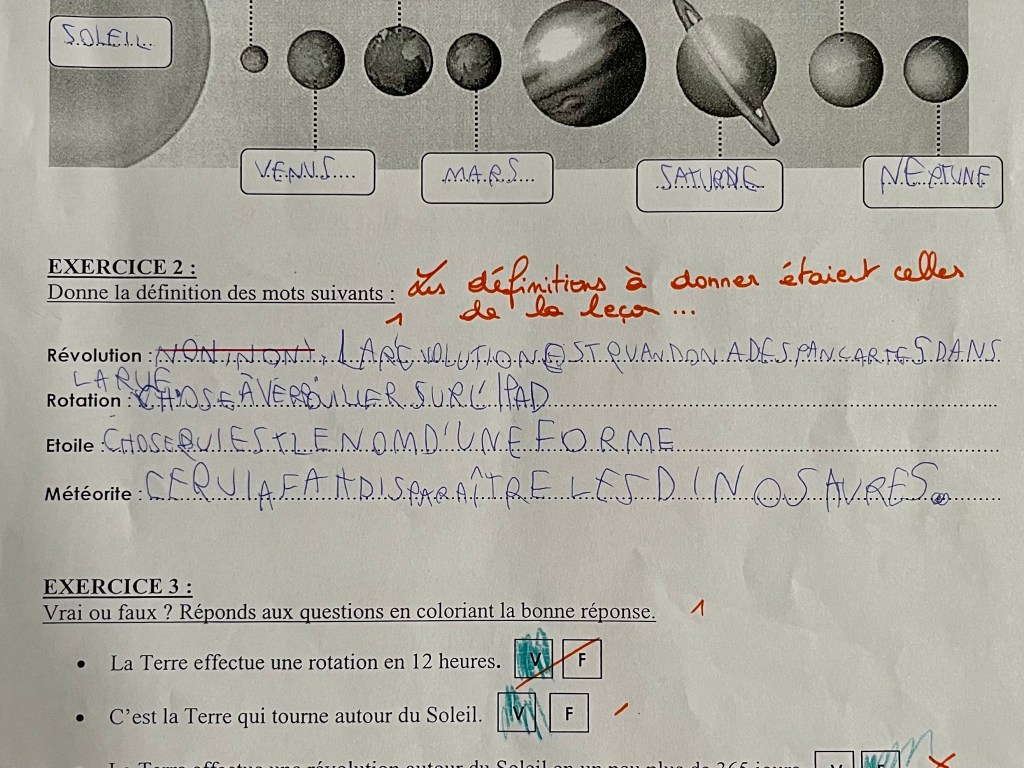 SOLEIL
VENUS....
MARS...
SATURNE
NEPTUNE
EXERCICE 2 :
Donne la définition des mots suivants :
Les définitions à donner étaient celles
de la leçon ...
1
Révolution : NON, NON, LA RÉVOLUTION EST QUAND ON A DES PANCARTES DANS
LA RUE
Rotation : CHOSE À VÉROUILLER SUR L'IPAD
Etoile : CHOSE QUI EST LE NOM D'UNE FORME
Météorite : CE QUI A FAIT DISPARAÎTRE LES DINOSAURES.
EXERCICE 3 :
Vrai ou faux ? Réponds aux questions en coloriant la bonne réponse. 1
• La Terre effectue une rotation en 12 heures. V F
• C'est la Terre qui tourne autour du Soleil. V F
La Terre effectue une révolution autour du Soleil en un peu plus de 365 jours. V